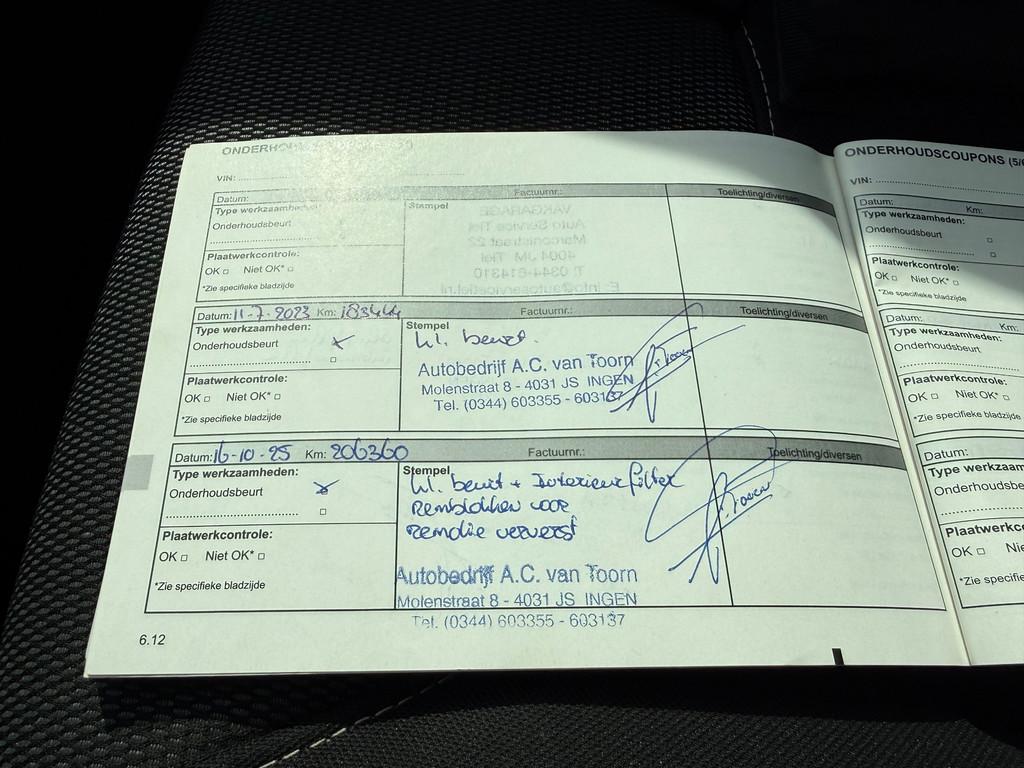 VIN:
Datum: Factuurnr.: Toelichting/diversen
Type werkzaamheden: Stempel
Onderhoudsbeurt
Plaatwerkcontrole:
OK Niet OK*
*Zie specifieke bladzijde
Datum: 11-7-2023 Km: Factuurnr.: Toelichting/diversen
Type werkzaamheden: Stempel
Onderhoudsbeurt kl. beurt.
Autobedrijf A.C. van Toorn
Molenstraat 8 - 4031 JS INGEN
Tel. (0344) 603355 - 603137
Plaatwerkcontrole:
OK Niet OK*
*Zie specifieke bladzijde
Datum: 16-10-25 Km: 206360 Factuurnr.: Toelichting/diversen
Type werkzaamheden: Stempel
Onderhoudsbeurt kl. beurt + Interieurfilter
Remblokken voor
Remolie ververst
Plaatwerkcontrole:
OK Niet OK*
*Zie specifieke bladzijde
Autobedrijf A.C. van Toorn
Molenstraat 8 - 4031 JS INGEN
Tel. (0344) 603355 - 603137
6.12
ONDERHOUDSCOUPONS (5/
VIN:
Datum: Km:
Type werkzaamheden:
Onderhoudsbeurt
Plaatwerkcontrole:
OK Niet OK*
*Zie specifieke bladzijde
Datum: Km:
Type werkzaamheden:
Onderhoudsbeurt
Plaatwerkcontrole:
OK Niet OK*
*Zie specifieke bladzijde
Datum:
Type werkzaam
Onderhoudsbe
Plaatwerkc
OK Niet
*Zie specifie